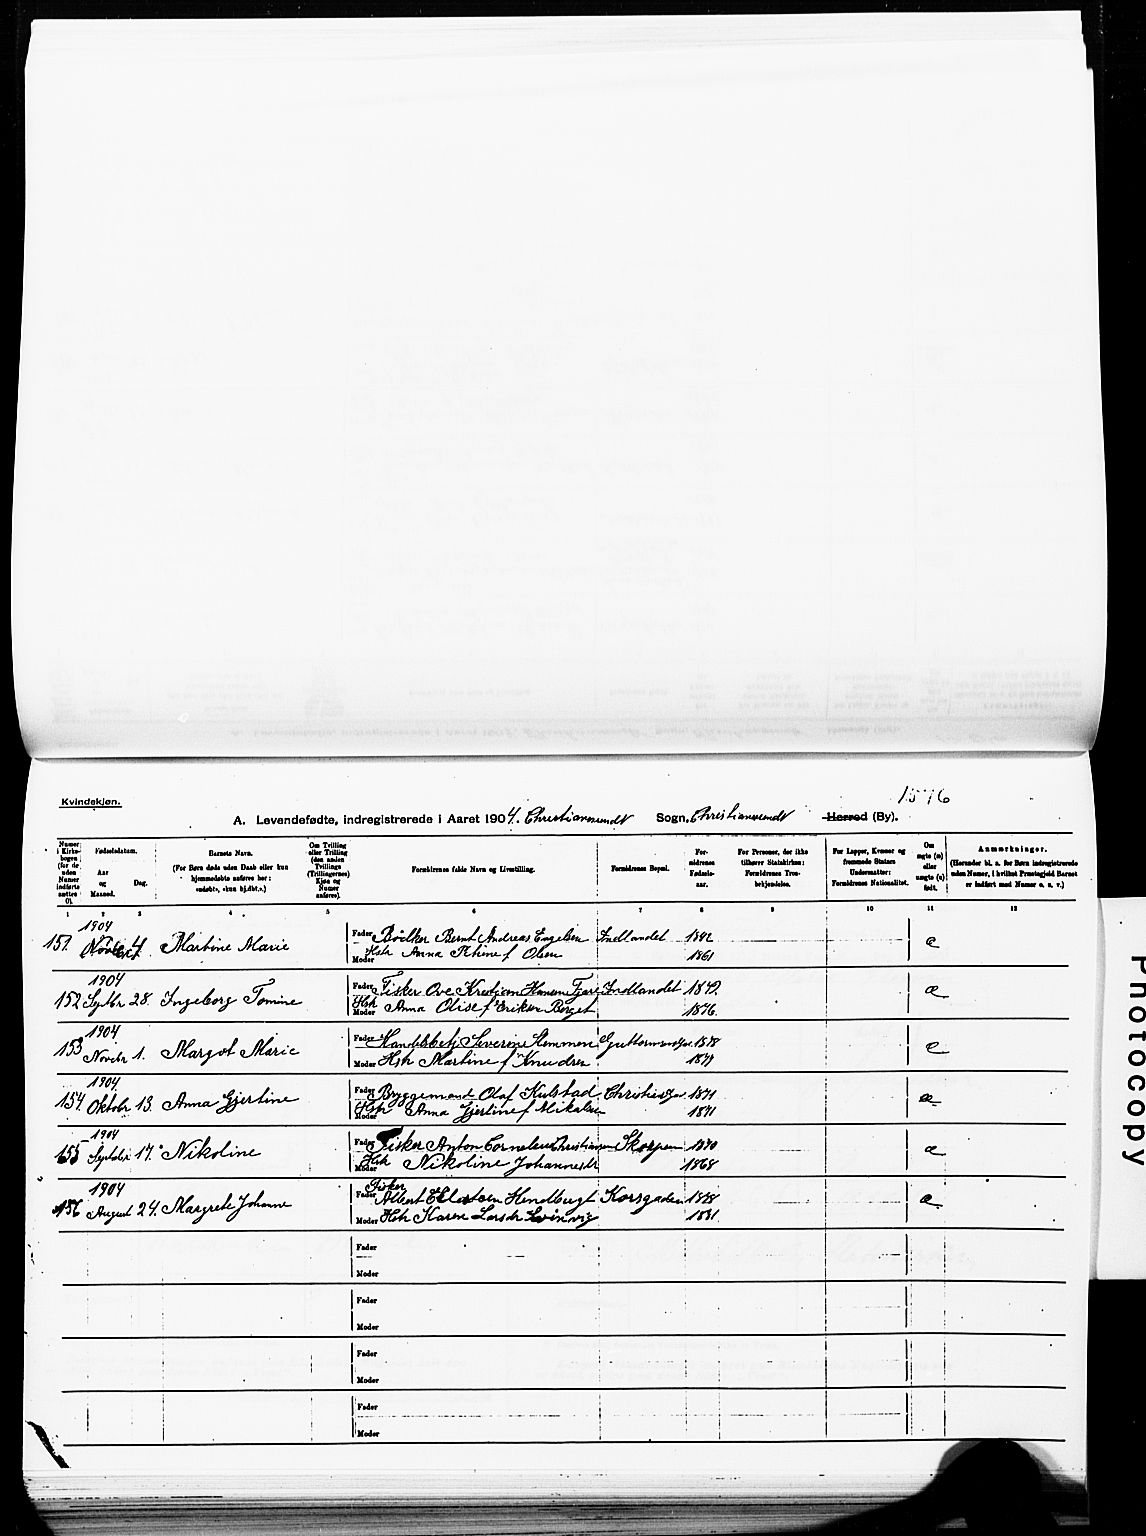 1576
Kvindekjøn.
A. Levendefødte, indregistrerede i Aaret 1904. Christianssundt Sogn. Christianssundt Herred (By).
Numer i Kirkebogen (for de uden Numer indførte sættes 0).
Fødselsdatum.
Aar og Maaned.
Dag.
Barnets Navn.
(For Børn døde uden Daab eller kun hjemmedøbte anføres her: «udøbt», «kun hj.dbt.».)
Om Tvilling eller Trilling (den anden Tvillings (Trillingernes) Kjøn og Numer anføres).
Forældrenes fulde Navn og Livsstilling.
Forældrenes Bopæl.
Forældrenes Fødselsaar.
For Personer, der ikke tilhører Statskirken: Forældrenes Trosbekjendelse.
For Lapper, Kvæner og fremmede Staters Undersaatter: Forældrenes Nationalitet.
Om ægte (æ) eller uægte (u) født.
Anmærkninger.
(Herunder bl. a. for Børn indregistrerede uden Numer, i hvilket Præstegjeld Barnet er indført med Numer o. s. v.)
1 2 3 4 5 6 7 8 9 10 11 12
1904
151. Novbr 4 Martine Marie Fader Bødker Bernt Andreas Engelsen Indlandet 1842 æ
Moder Hstr Anna Thine f Olsen 1861
1904
152 Septbr 28. Ingeborg Tomine Fader Fisker Ove Kristian Hansen Indlandet 1872. æ
Moder Hstr Anna Olise f Eriksen Berget 1876.
1904
153 Novbr 1. Margot Marie Fader Severine Guttormsensgd. 1878 æ
Moder Hstr Martine f Knudsen 1879
1904.
154. Oktobr 13. Anna Gjertine Fader Byggemand Olaf Kulstad. Christiesgd. 1871 æ
Moder Hstr Anna Gjertine f Mikalsen 1871
1904
155 Septbr 17. Nikoline Fader Fisker Anton Cornelius Christiansen Skorpen 1870 æ
Moder Hstr Nikoline Johannesdr 1868
1904
156 August 24. Margrete Johanne Fader Fisker
Albert Korsgaden æ
Moder Hstr Karen Larsdr
Fader
Moder
Fader
Moder
Fader
Moder
Fader
Moder
Photocopy